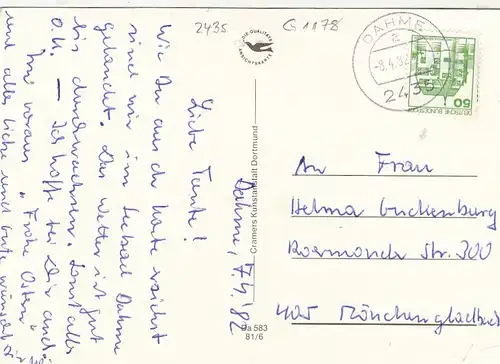 2435
G 1178
DIE QUALITÄTS
ANSICHTSKARTE
DAHME
a
-8.4.82
2435
50
DEUTSCHE BUNDESPOST
Dahme, 7.4.'82
Liebe Tante!
Wie Du aus der Karte siehst
sind wir im Seebad Dahme
gelandet. Das Wetter ist gut
bis durchwachsen. Sonst alles
O.K. — Ich hoffe bei Dir auch.
Im voraus "Frohe Ostern"
und alles liebe und gute wünscht Dir
Cramers Kunstanstalt Dortmund
Da 583
81/6
An Frau
Helma Guckenburg
Roermonder Str. 300
405 Mönchengladbach